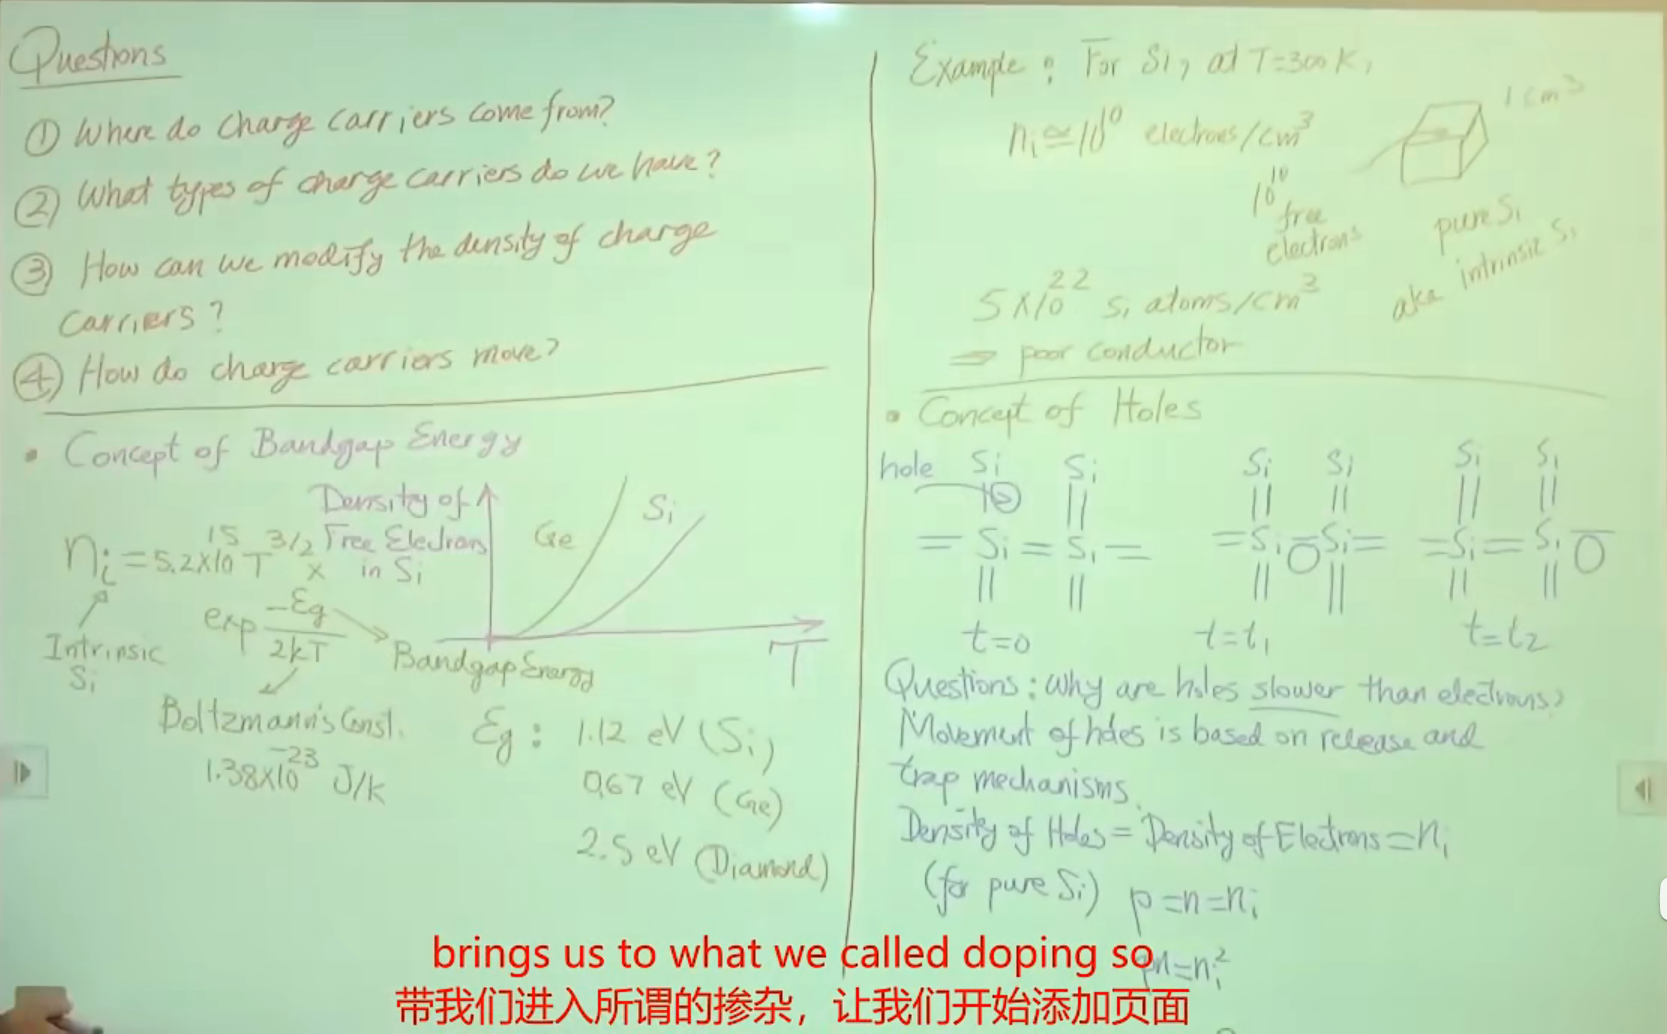 Questions
① Where do charge carriers come from?
② What types of charge carriers do we have?
③ How can we modify the density of charge
carriers?
④ How do charge carriers move?
• Concept of Bandgap Energy
Density of
Free Electrons
in Si
Ge
Si
T
nᵢ = 5.2×10¹⁵ T^3/2 ×
exp -Eg/2kT
Intrinsic
Si
Bandgap Energy
Boltzmann's Const.
1.38×10⁻²³ J/K
Eg : 1.12 eV (Si)
0.67 eV (Ge)
2.5 eV (Diamond)
Example : For Si, at T=300K,
nᵢ ≃ 10¹⁰ electrons/cm³
1 cm³
10¹⁰
free
electrons
pure Si
aka intrinsic Si
5×10²² Si atoms/cm³
⇒ poor conductor
• Concept of Holes
hole Si Si Si Si Si Si
= Si = Si = = Si Si = = Si = Si
t=0 t=t₁ t=t₂
Questions: Why are holes slower than electrons?
Movement of holes is based on release and
trap mechanisms.
Density of Holes = Density of Electrons = nᵢ
(for pure Si) p=n=nᵢ
pn=nᵢ²
brings us to what we called doping so
带我们进入所谓的掺杂，让我们开始添加页面